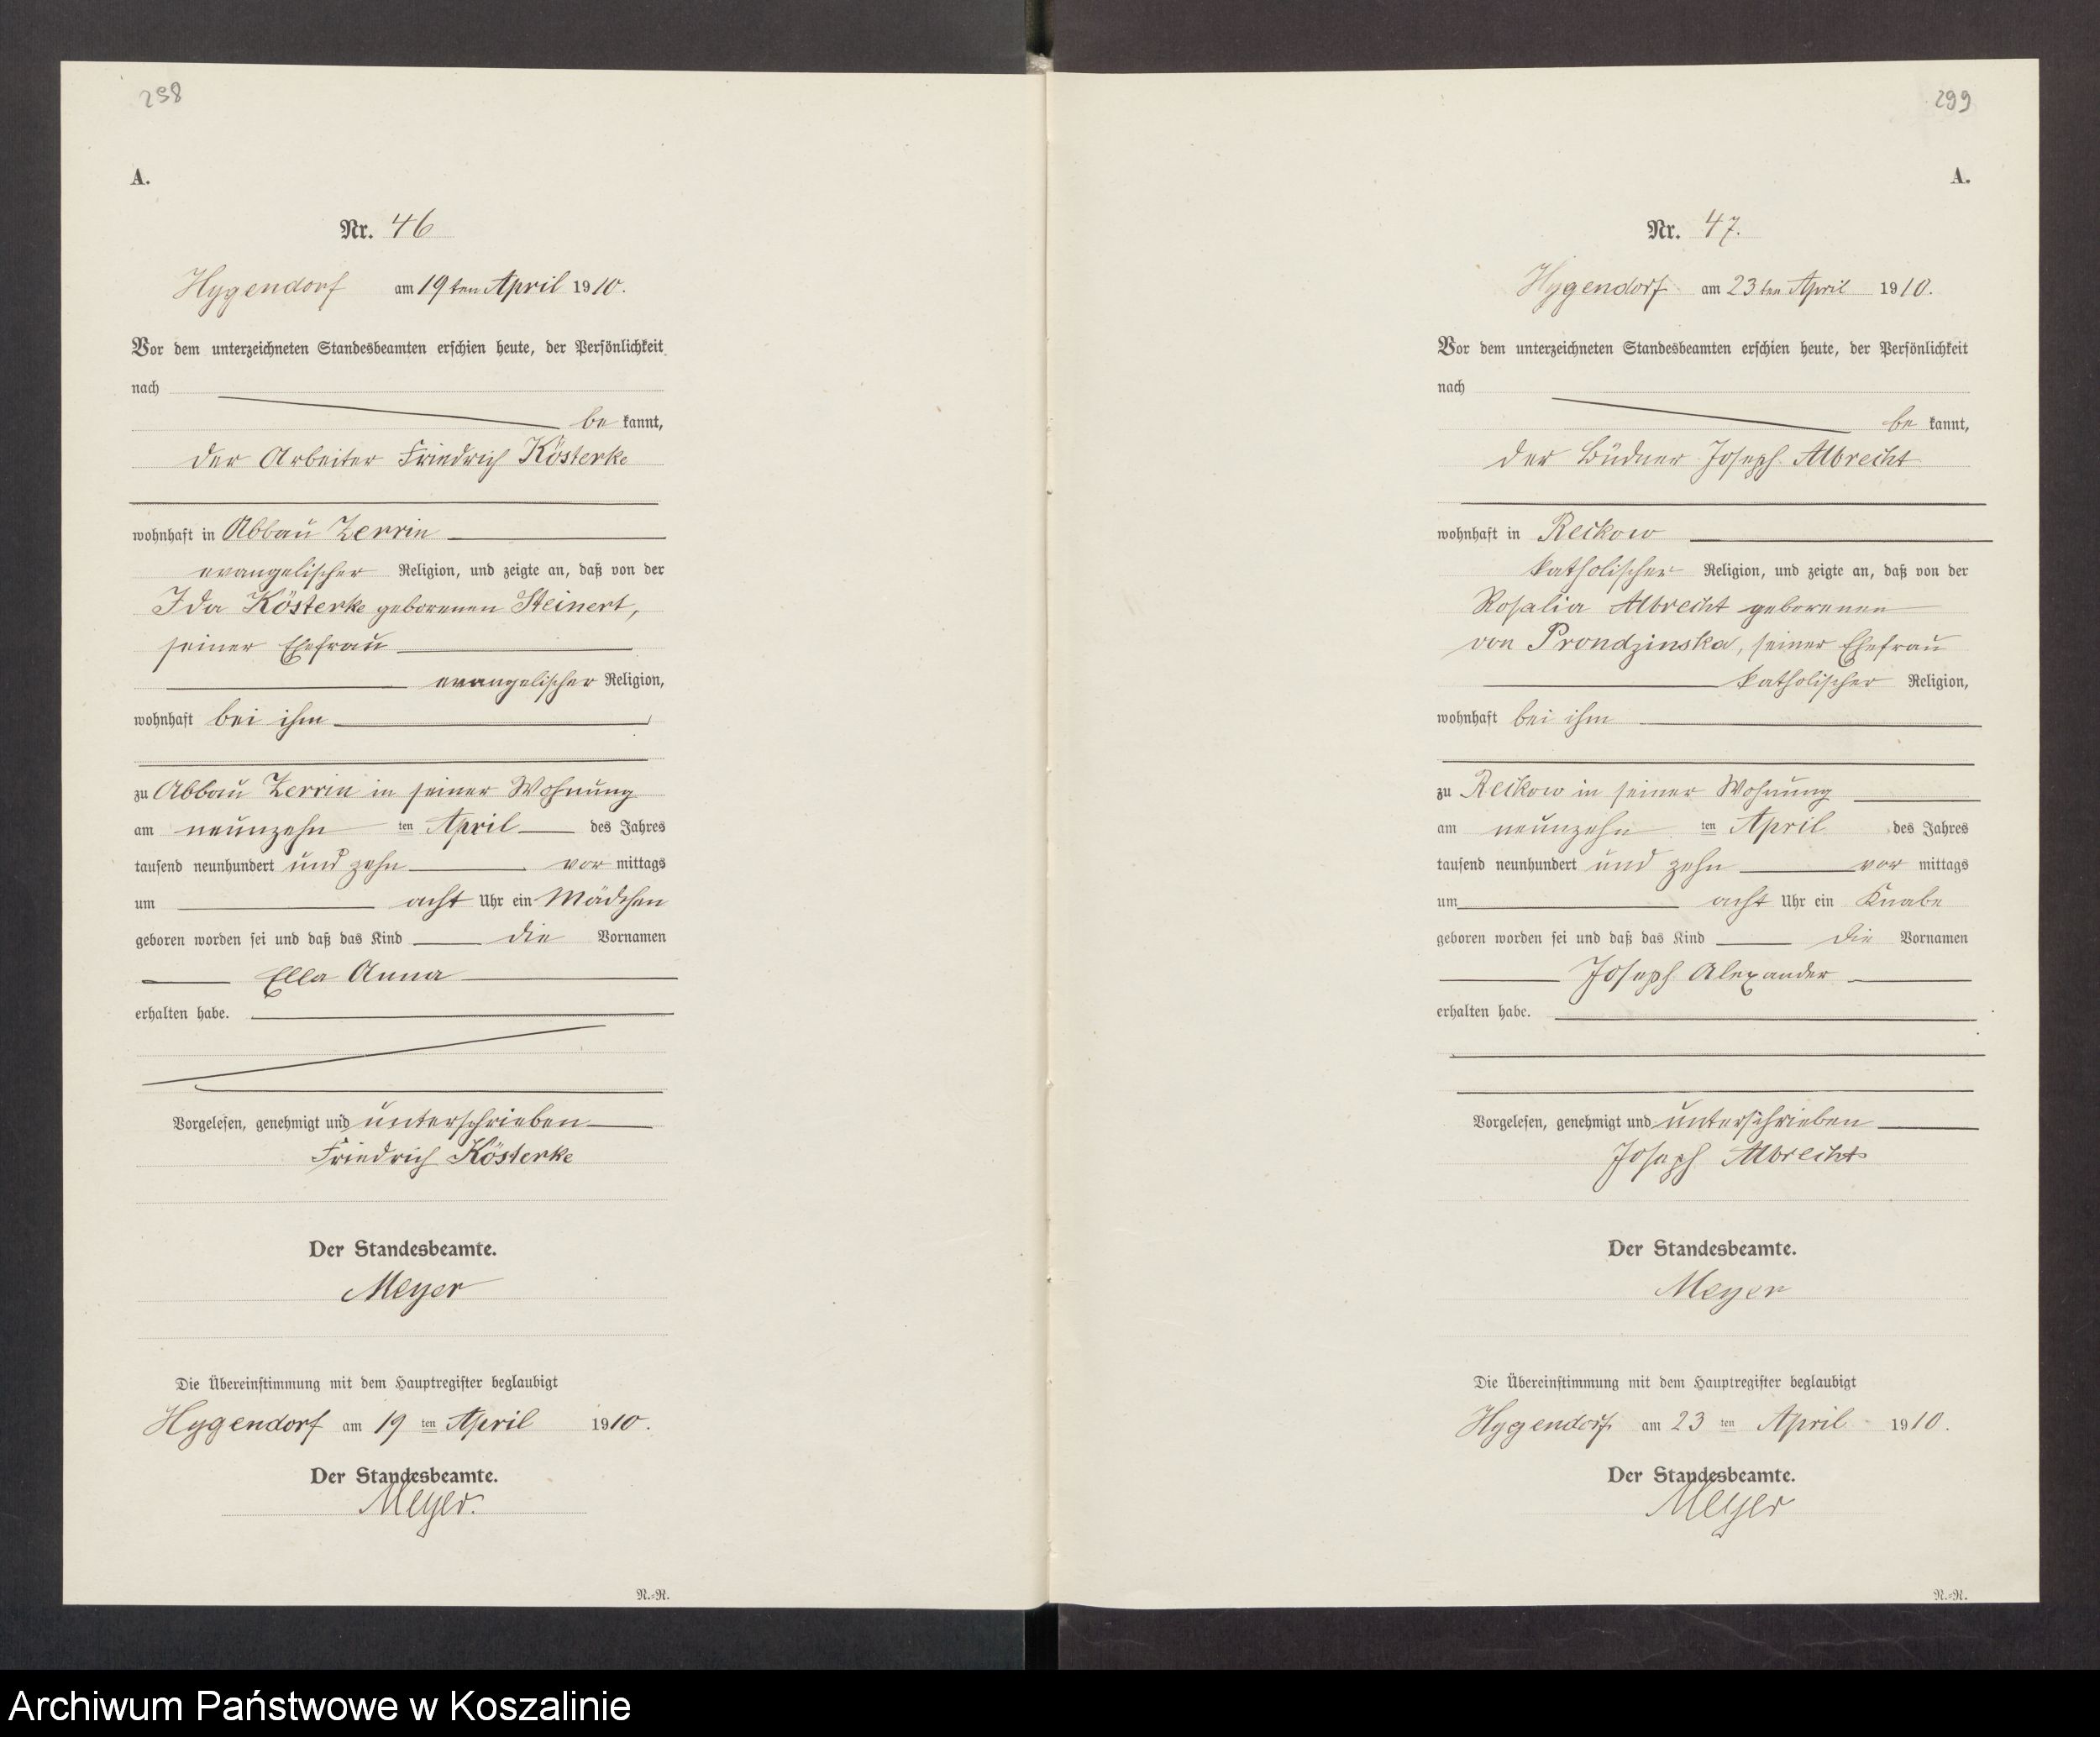 298
A.
Nr. 46
Hygendorf am 19ten April 1910.
Vor dem unterzeichneten Standesbeamten erschien heute, der Persönlichkeit
nach
be kannt,
der Arbeiter Friedrich Kösterke
wohnhaft in Abbau Zerrin
evangelischer Religion, und zeigte an, daß von der
Ida Kösterke geborenen Steinert,
seiner Ehefrau
evangelischer Religion,
wohnhaft bei ihm
zu Abbau Zerrin in seiner Wohnung
am neunzehn ten April des Jahres
tausend neunhundert und zehn vor mittags
um acht Uhr ein Mädchen
geboren worden sei und daß das Kind die Vornamen
Ella Anna
erhalten habe.
Vorgelesen, genehmigt und unterschrieben
Friedrich Kösterke
Der Standesbeamte.
Meyer
Die Übereinstimmung mit dem Hauptregister beglaubigt
Hygendorf am 19 ten April 1910.
Der Standesbeamte.
Meyer.
N.-N.
299
A.
Nr. 47.
Hygendorf am 23ten April 1910.
Vor dem unterzeichneten Standesbeamten erschien heute, der Persönlichkeit
nach
be kannt,
der Büdner Joseph Albrecht
wohnhaft in Reckow
katholischer Religion, und zeigte an, daß von der
Rosalia Albrecht geborenen
von Prondzinska, seiner Ehefrau
katholischer Religion,
wohnhaft bei ihm
zu Reckow in seiner Wohnung
am neunzehn ten April des Jahres
tausend neunhundert und zehn vor mittags
um acht Uhr ein Knabe
geboren worden sei und daß das Kind die Vornamen
Joseph Alexander
erhalten habe.
Vorgelesen, genehmigt und unterschrieben
Joseph Albrecht
Der Standesbeamte.
Meyer
Die Übereinstimmung mit dem Hauptregister beglaubigt
Hygendorf am 23 ten April 1910.
Der Standesbeamte.
Meyer
N.-N.
Archiwum Państwowe w Koszalinie